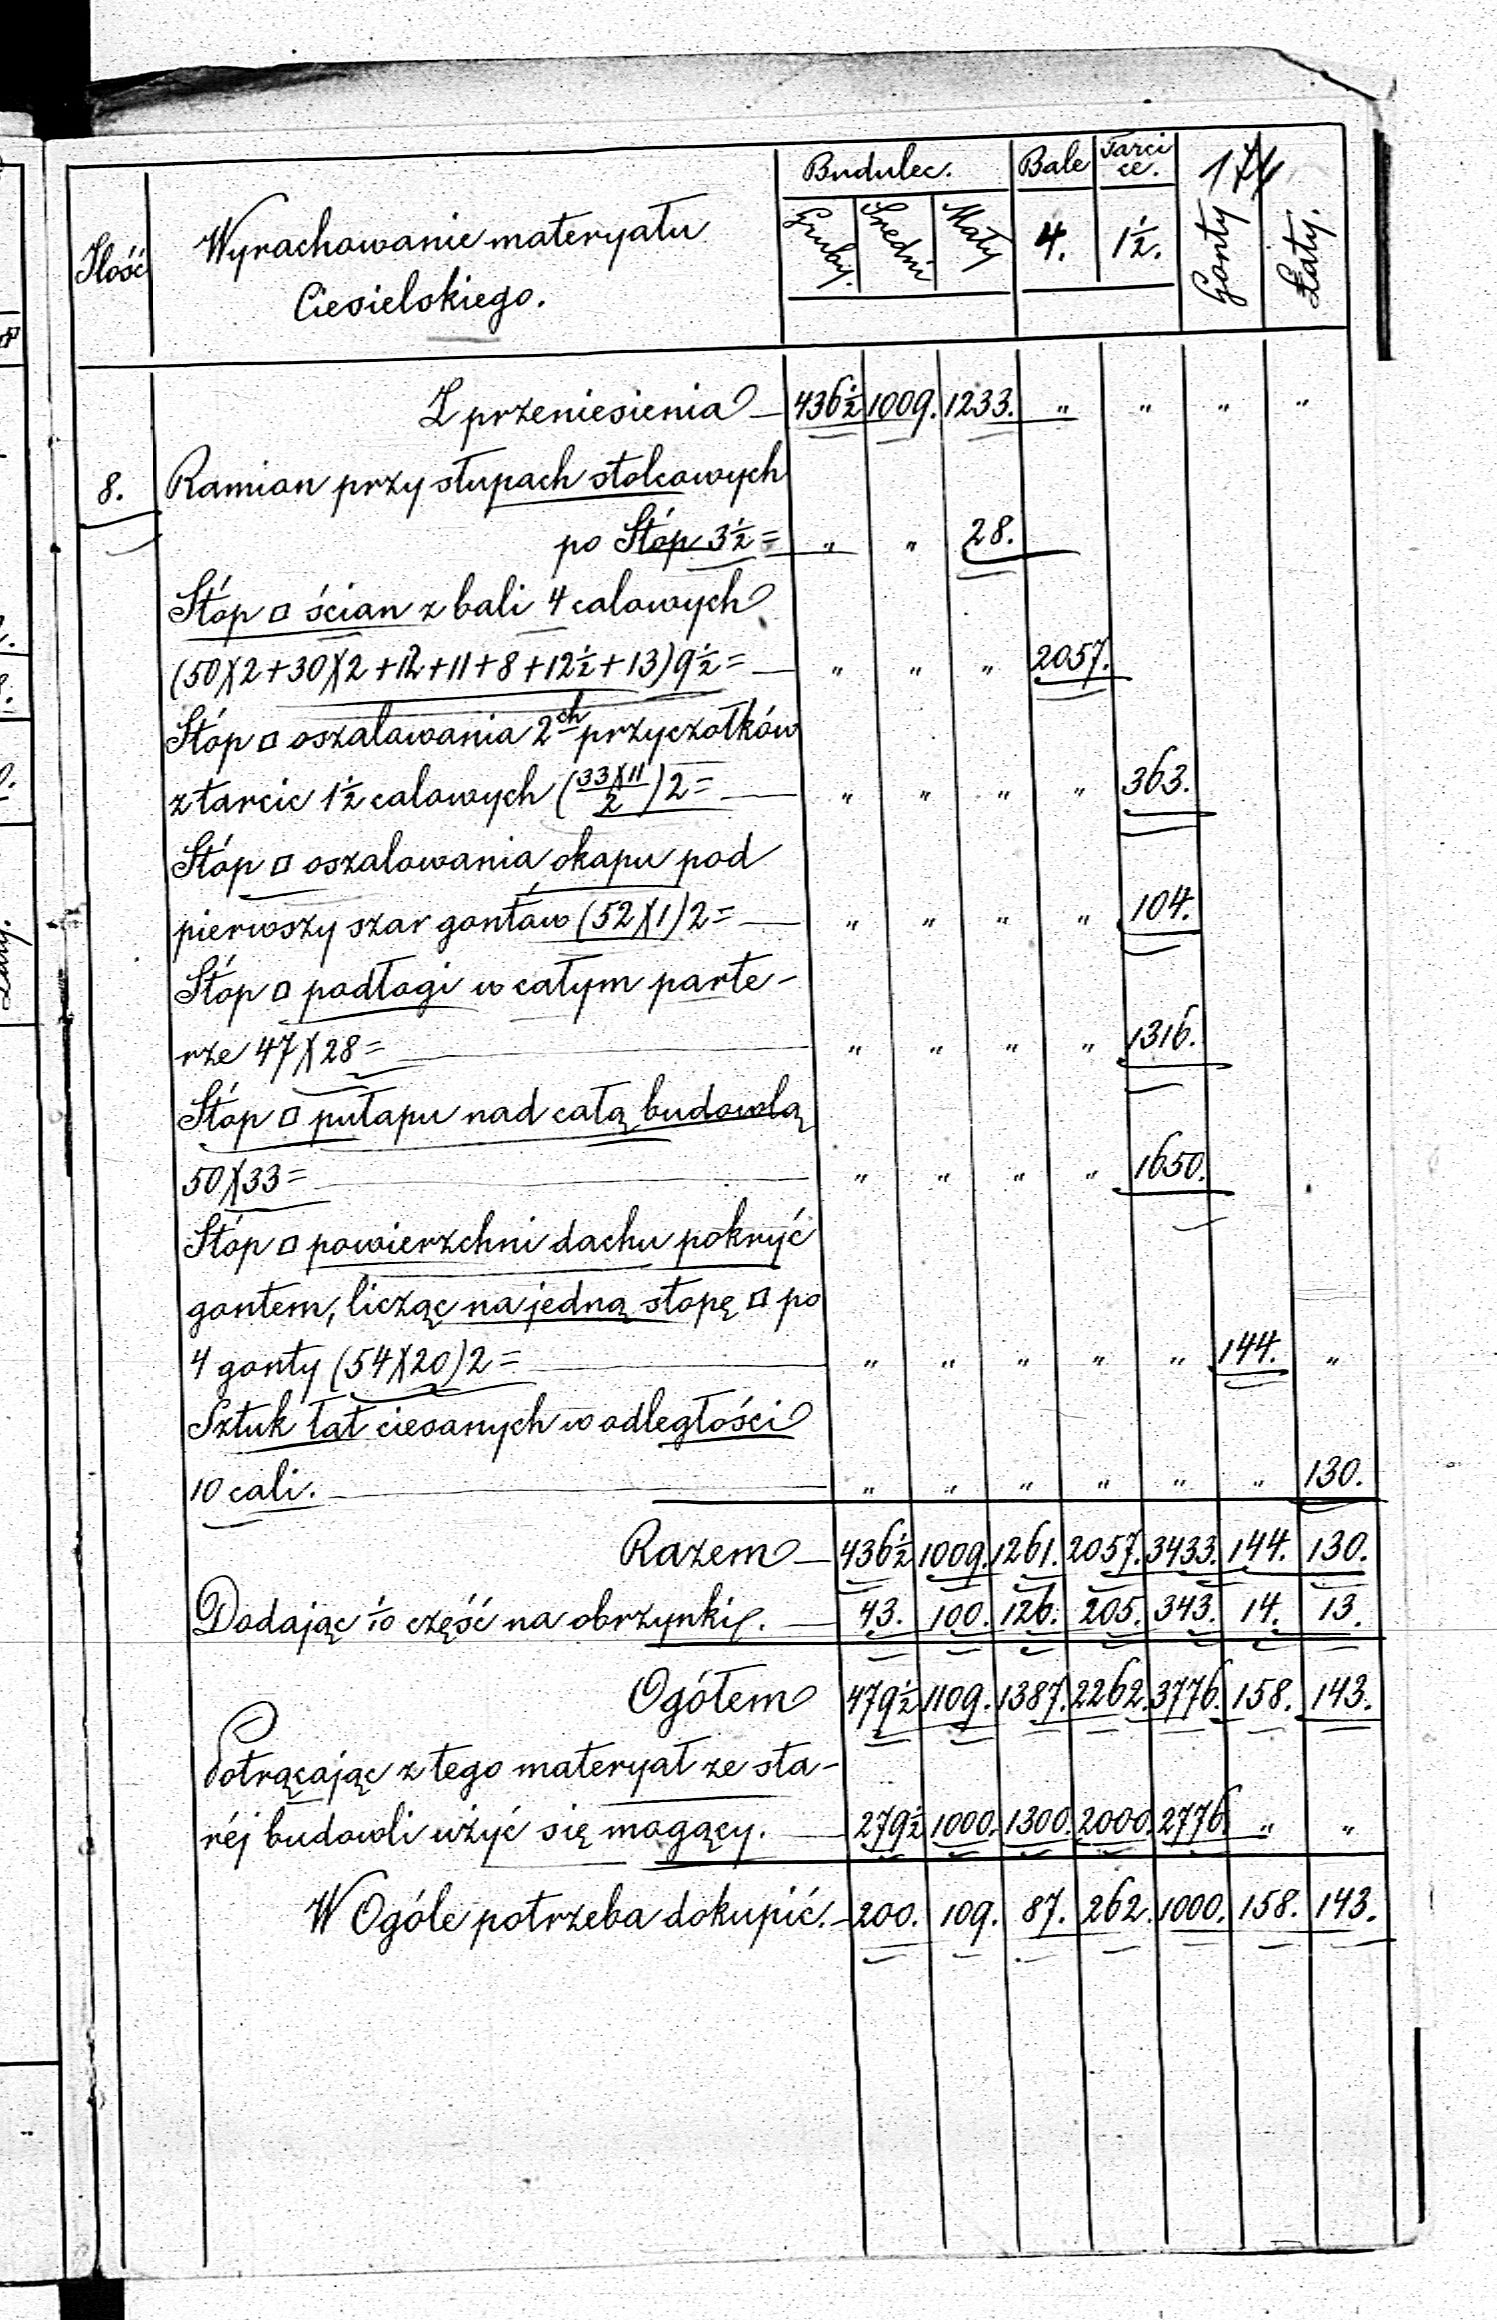 Ilość Wyrachowanie materyału Ciesielskiego. Budulec. Bale Tarcice.
Gruby. Średni Mały 4. 1½. Gonty Łaty.
Z przeniesienia — 436½ 1009. 1233. " " " "
8. Ramion przy słupach stolcowych
po Stóp 3½ = " " 28.
Stóp □ ścian z bali 4 calowych
(50)(2+30)(2+12+11+8+12½+13)9½ = — " " " 2057.
Stóp □ oszalowania 2ch przyczołków
z tarcic 1½ calowych (33)(11/2)2 = — " " " " 363.
Stóp □ oszalowania okapu pod
pierwszy szar gontów (52)(1)2 = — " " " " 104.
Stóp □ podłogi w całym parte-
rze 47)(28 = — " " " " 1316.
Stóp □ pułapu nad całą budowlą
50)(33 = — " " " " 1650.
Stóp □ powierzchni dachu pokryć
gontem, licząc na jedną stopę □ po
4 gonty (54)(20)2 = — " " " " " 144. "
Sztuk łat ciesanych w odległości
10 cali. — " " " " " " 130.
Razem — 436½ 1009. 1261. 2057. 3433. 144. 130.
Dodając 1/10 część na obrzynki. — 43. 100. 126. 205. 343. 14. 13.
Ogółem 479½ 1109. 1387. 2262. 3776. 158. 143.
Potrącając z tego materyał ze sta-
réj budowli użyć się mogący. — 279½ 1000. 1300. 2000. 2776. " "
W Ogóle potrzeba dokupić. — 200. 109. 87. 262. 1000. 158. 143.